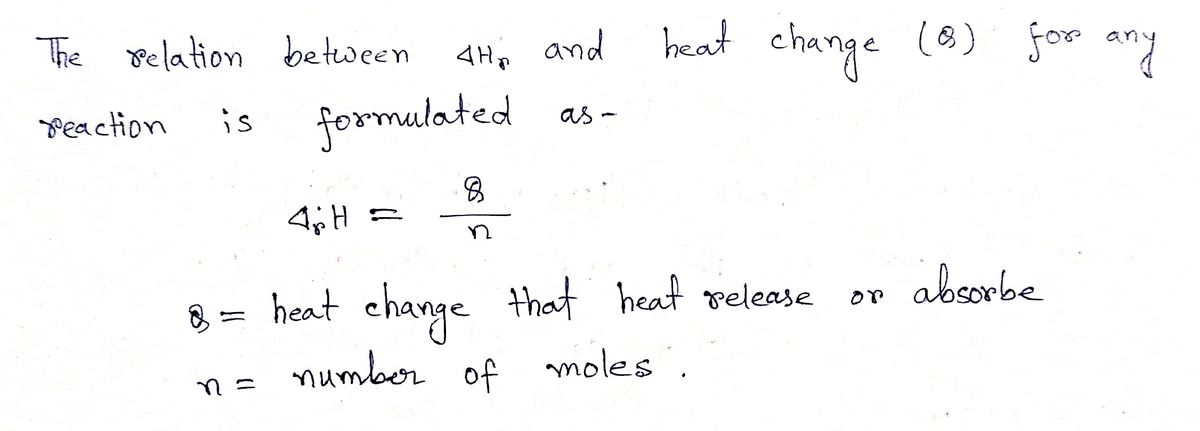 The relation between ΔHr and heat change (Q) for any
reaction is formulated as -
ΔrH = Q / n
Q = heat change that heat release or absorbe
n = number of moles .